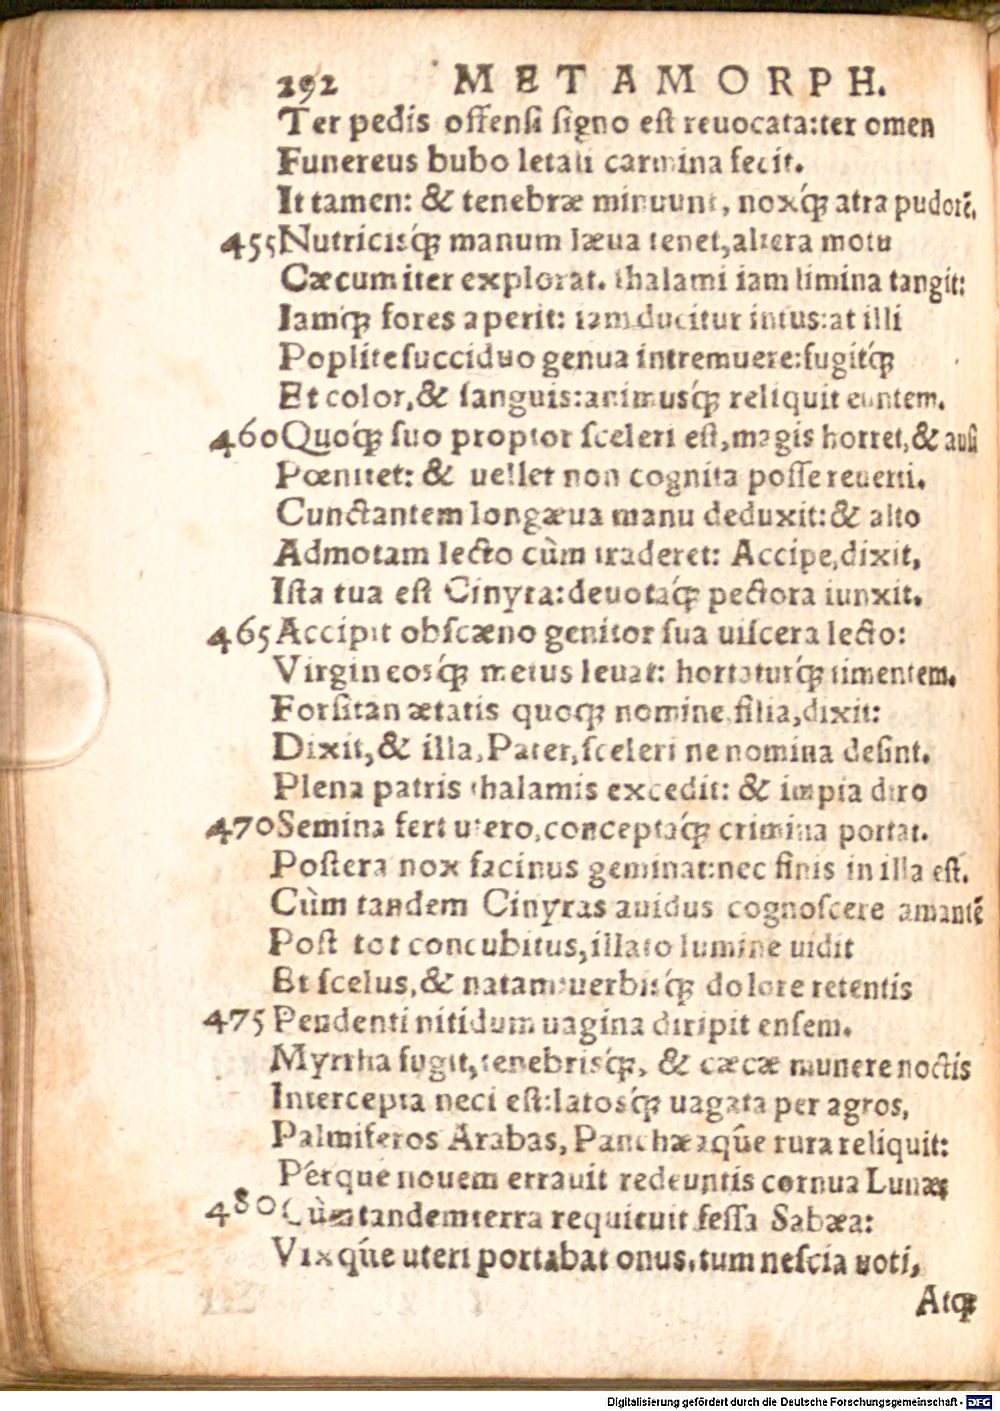 292 METAMORPH.
Ter pedis offensi signo est reuocata:ter omen
Funereus bubo letali carmina fecit.
It tamen: & tenebræ minuunt, noxq́; atra pudorẽ.
455 Nutricisq́; manum læua tenet,altera motu
Cæcum iter explorat. thalami iam limina tangit:
Iamq́; fores aperit: iam ducitur intus:at illi
Poplite succiduo genua intremuere:fugitq́;
Et color,& sanguis:animusq́; reliquit euntem.
460 Quoq́; suo propior sceleri est,magis horret,& ausi
Pœnitet: & uellet non cognita posse reuerti.
Cunctantem longæua manu deduxit:& alto
Admotam lecto cùm traderet: Accipe,dixit,
Ista tua est Cinyra:deuotaq́; pectora iunxit.
465 Accipit obscæno genitor sua uiscera lecto:
Virgineosq́; metus leuat: hortaturq́; timentem.
Forsitan ætatis quoq; nomine,filia,dixit:
Dixit,& illa,Pater,sceleri ne nomina desint.
Plena patris thalamis excedit: & impia diro
470 Semina fert utero,conceptaq́; crimina portat.
Postera nox facinus geminat:nec finis in illa est.
Cùm tandem Cinyras auidus cognoscere amantẽ
Post tot concubitus,illato lumine uidit
Et scelus,& natam:uerbisq́; dolore retentis
475 Pendenti nitidum uagina diripit ensem.
Myrrha fugit,tenebrisq́;, & cæcæ munere noctis
Intercepta neci est:latosq́; uagata per agros,
Palmiferos Arabas, Panchæaq̂ue rura reliquit:
Pérque nouem errauit redeuntis cornua Lunæ;
480 Cùm tandem terra requieuit fessa Sabæa:
Vixq́ue uteri portabat onus.tum nescia uoti,
Atq;
Digitalisierung gefördert durch die Deutsche Forschungsgemeinschaft - DFG